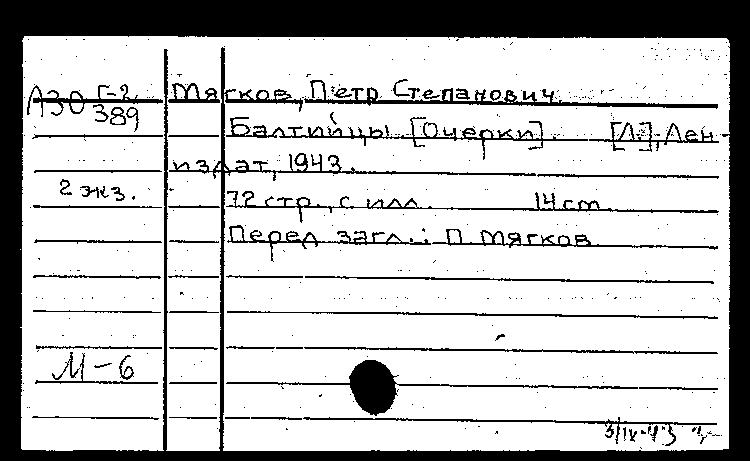 Г-2
Л30 389
Мягков, Петр Степанович.
Балтийцы. [Очерки]. [Л.], Лен-
издат, 1943.
2 экз.
72 стр., с илл. 14 cm
Перед загл.: П. Мягков
М-6
3/IX-43